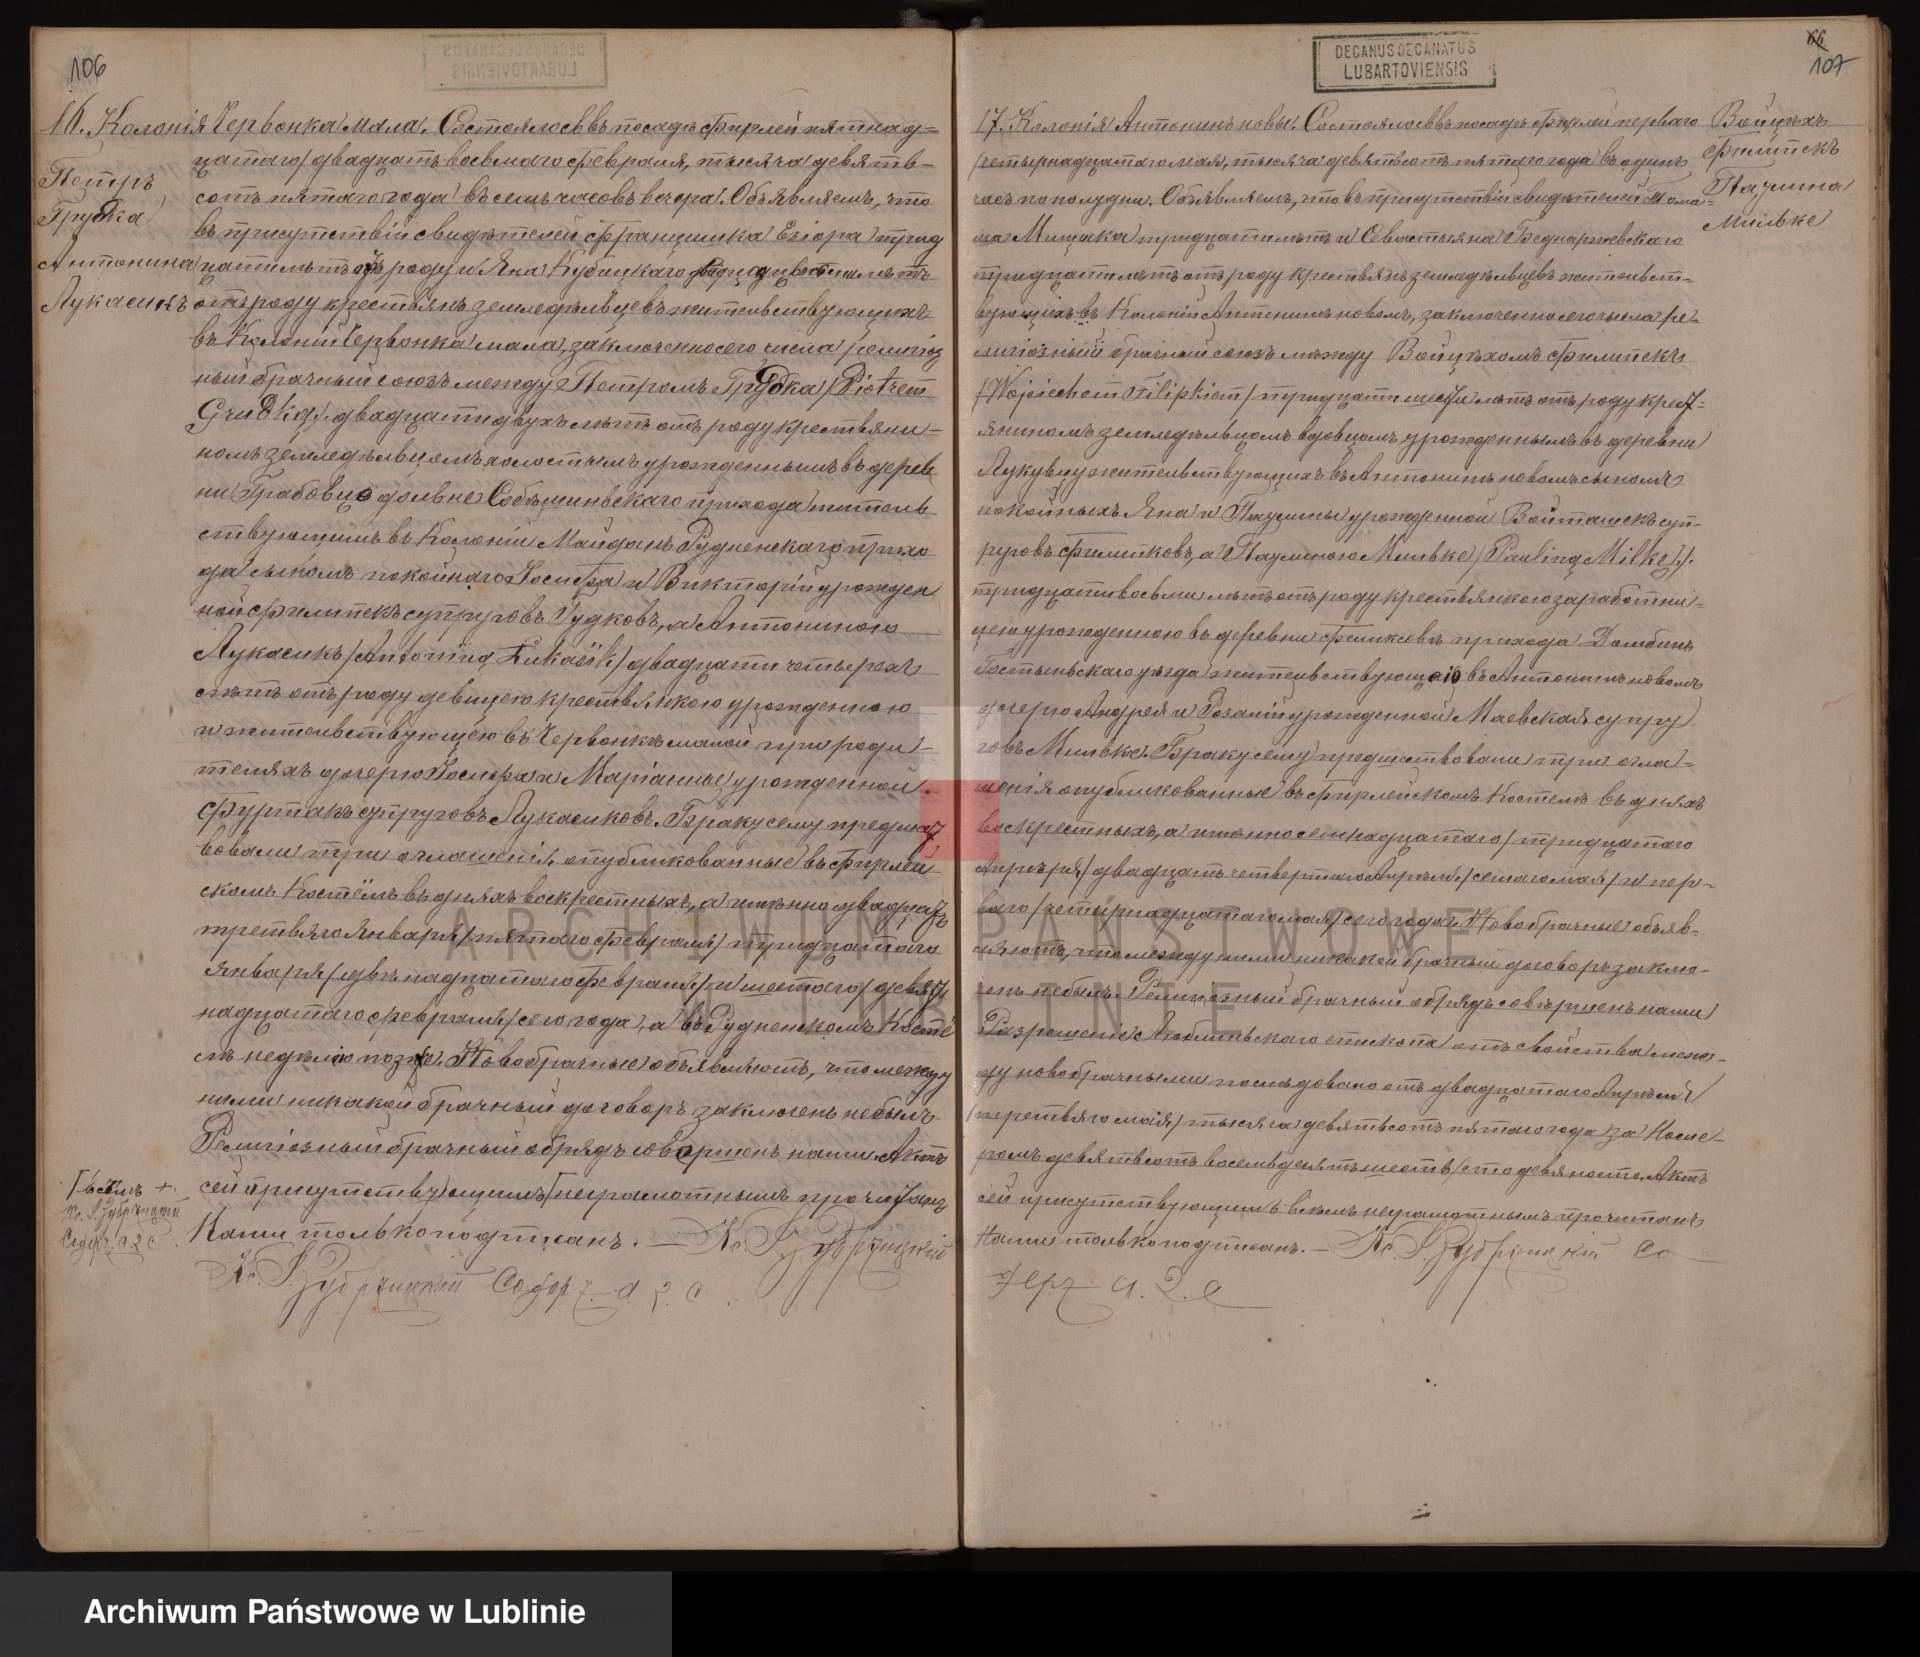 106
DECANUS DECANATUS
LUBARTOVIENSIS
66
107
16. Колонія Червонка мала. Состоялось въ посадѣ Фирлей пятнад=
Петръ
Грудка
Антонина
Лукасикъ
цатаго/двадцать восьмаго Февраля, тысяча девять=
сотъ пятаго года въ семь часовъ вечера. Объявляемъ, что
въ присутствіи свидѣтелей Францишка Езіора трид
цати лѣтъ отъ роду и Яна Кубицкаго лѣтъ
отъ роду крестьянъ земледѣльцевъ жительствующихъ
въ Колоніи Червонка мала, заключенно сего числа религіоз
ный брачный союзъ между Петромъ Грудка /Piotrem
Grudką/ двадцати двухъ лѣтъ отъ роду крестьяни=
номъ земледѣльцомъ холостымъ урожденнымъ въ дерев
ни Грабовце дольне прихода житель
ствующимъ въ Колоніи Майданъ Рудненскаго прихо
да сыномъ покойнаго Іосифа и Викторіи урожден
ной Филипекъ супруговъ и Антониною
Лукасикъ /Antoniną Łukasik/ двадцати четырехъ
лѣтъ отъ роду девицею крестьянкою урожденною
и жительствующею въ Червонкѣ малой при роди=
теляхъ дочерю Іосифа и Маріанны урожденной
Фуртакъ супруговъ Лукасиковъ. Браку сему предшест
вовали три оглашенія опубликованные въ Фирлей
скомъ Костёлѣ въ дняхъ воскрестныхъ, а имянно двадцать
третьяго Января/пятаго Февраля/ тридцатаго
января/двѣнадцатаго Февраля/ и шестаго/девят
надцатаго Февраля/сего года, а въ Рудненскомъ Костё
лѣ неделю позже. Новобрачные объявляютъ, что между
ними никакой брачный договоръ заключенъ небылъ.
Религіозный брачный обрядъ совершенъ нами. Актъ
сей присутствующимъ неграмотнымъ прочитанъ
Нами только подписанъ. — Кс. І. Зубржицкій
Кс. І. Зубржицкій Содерж. а. г. с.
всѣмъ +
Кс. І. Зубржицкій
Содерж. а г с
17. Колонія Антонинъ новы. Состоялось въ посадѣ Фирлей перваго
Войцѣхъ
Филипекъ
Паулина
Мильке
/четырнадцатаго мая, тысяча девятьсотъ пятаго года въ одинъ
часъ пополудни. Объявляемъ, что въ присутствіи свидѣтелей Тома=
ша тридцати лѣтъ и Севастьяна Беднаржевскаго
тридцати лѣтъ отъ роду крестьянъ земледѣльцевъ жительст=
вующихъ въ Колоніи Антонинѣ новомъ, заключенно сего числа ре=
лигіозный брачный союзъ между Войцѣхомъ Филипекъ
/Wojciechem Filipkiem/ тридцати шести лѣтъ отъ роду крест=
яниномъ земледѣльцомъ вдовцомъ урожденнымъ въ деревни
жительствующихъ въ Антонинѣ новомъ сыномъ
покойныхъ Яна и Паулины урожденной Войташекъ суп=
руговъ Филипковъ, а Паулиною Мильке /Pauliną Milke/.
тридцати восьми лѣтъ отъ роду крестьянкою заработни=
цею урожденною въ деревни Феликсовъ прихода
Гостыньскаго уѣзда жительствующею въ Антонинѣ новомъ
дочерю Андрея и Розаліи урожденной Маевская супру
говъ Мильке. Браку сему предшествовали три огла=
шенія опубликованные въ Фирлейскомъ Костелѣ въ дняхъ
воскрестныхъ, а имянно семнадцатаго/тридцатаго
Апрѣля/двадцать четвертаго Апрѣля/седьмаго мая/ и пер=
ваго/четырнадцатаго мая/сего года. Новобрачные объяв=
ляютъ, что между ними никакой брачный договоръ заклю=
ченъ небылъ. Религіозный брачный обрядъ совершенъ нами
Разрешеніе Люблинскаго епископа отъ свойства меж=
ду новобрачными последовало отъ двадцатаго Апрѣля
/третьяго мая/тысяча девятьсотъ пятаго года за Номе=
ромъ девятьсотъ восемьдесятъ шесть/сто девяносто. Актъ
сей присутствующимъ всѣмъ неграмотнымъ прочитанъ
Нами только подписанъ. — Кс. І. Зубржицкій Со
держ а. г. с
ARCHIWUM PAŃSTWOWE
W LUBLINIE
Archiwum Państwowe w Lublinie